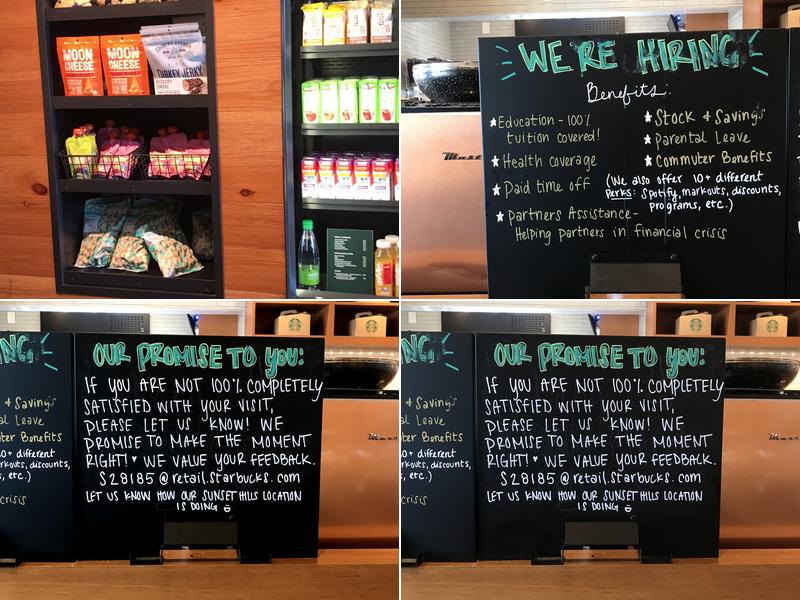 MOON
CHEESE
MOON
CHEESE
TURKEY JERKY
HICKORY
SMOKE
WE'RE HIRING
Benefits:
★ Education - 100%
tuition covered!
★ Health coverage
★ Paid time off
★ Partners Assistance-
Helping partners in financial crisis
★ Stock & Savings
★ Parental Leave
★ Commuter Benefits
(We also offer 10+ different
perks: Spotify, markouts, discounts,
programs, etc.)
NG
& Savings
tal Leave
uter Benefits
10+ different
rkouts, discounts,
s, etc.)
crisis
OUR PROMISE TO YOU:
IF YOU ARE NOT 100% COMPLETELY
SATISFIED WITH YOUR VISIT,
PLEASE LET US KNOW! WE
PROMISE TO MAKE THE MOMENT
RIGHT! ♥ WE VALUE YOUR FEEDBACK.
S28185@retail.starbucks.com
LET US KNOW HOW OUR SUNSET HILLS LOCATION
IS DOING ☺
NG
& Savings
tal Leave
uter Benefits
0+ different
rkouts, discounts,
s, etc.)
crisis
OUR PROMISE TO YOU:
IF YOU ARE NOT 100% COMPLETELY
SATISFIED WITH YOUR VISIT,
PLEASE LET US KNOW! WE
PROMISE TO MAKE THE MOMENT
RIGHT! ♥ WE VALUE YOUR FEEDBACK.
S28185@retail.starbucks.com
LET US KNOW HOW OUR SUNSET HILLS LOCATION
IS DOING ☺